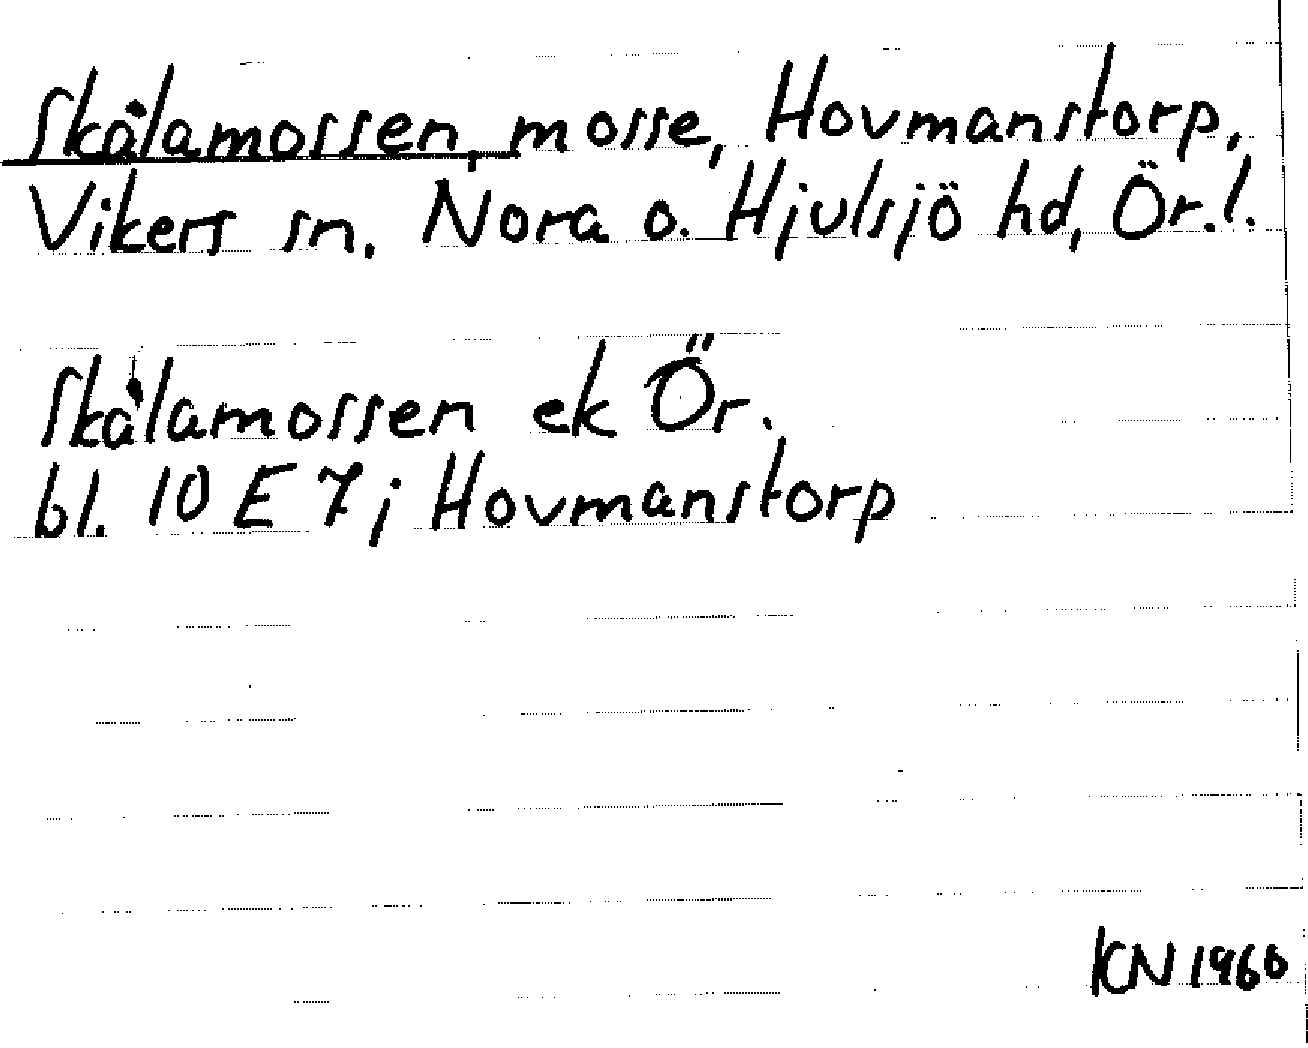 Skålamossen, mosse, Hovmanstorp,
Vikers sn. Nora o. Hjulsjö hd, Ör.l.
Skålamossen ek Ör.
bl. 10 E 7j Hovmanstorp
KN 1960